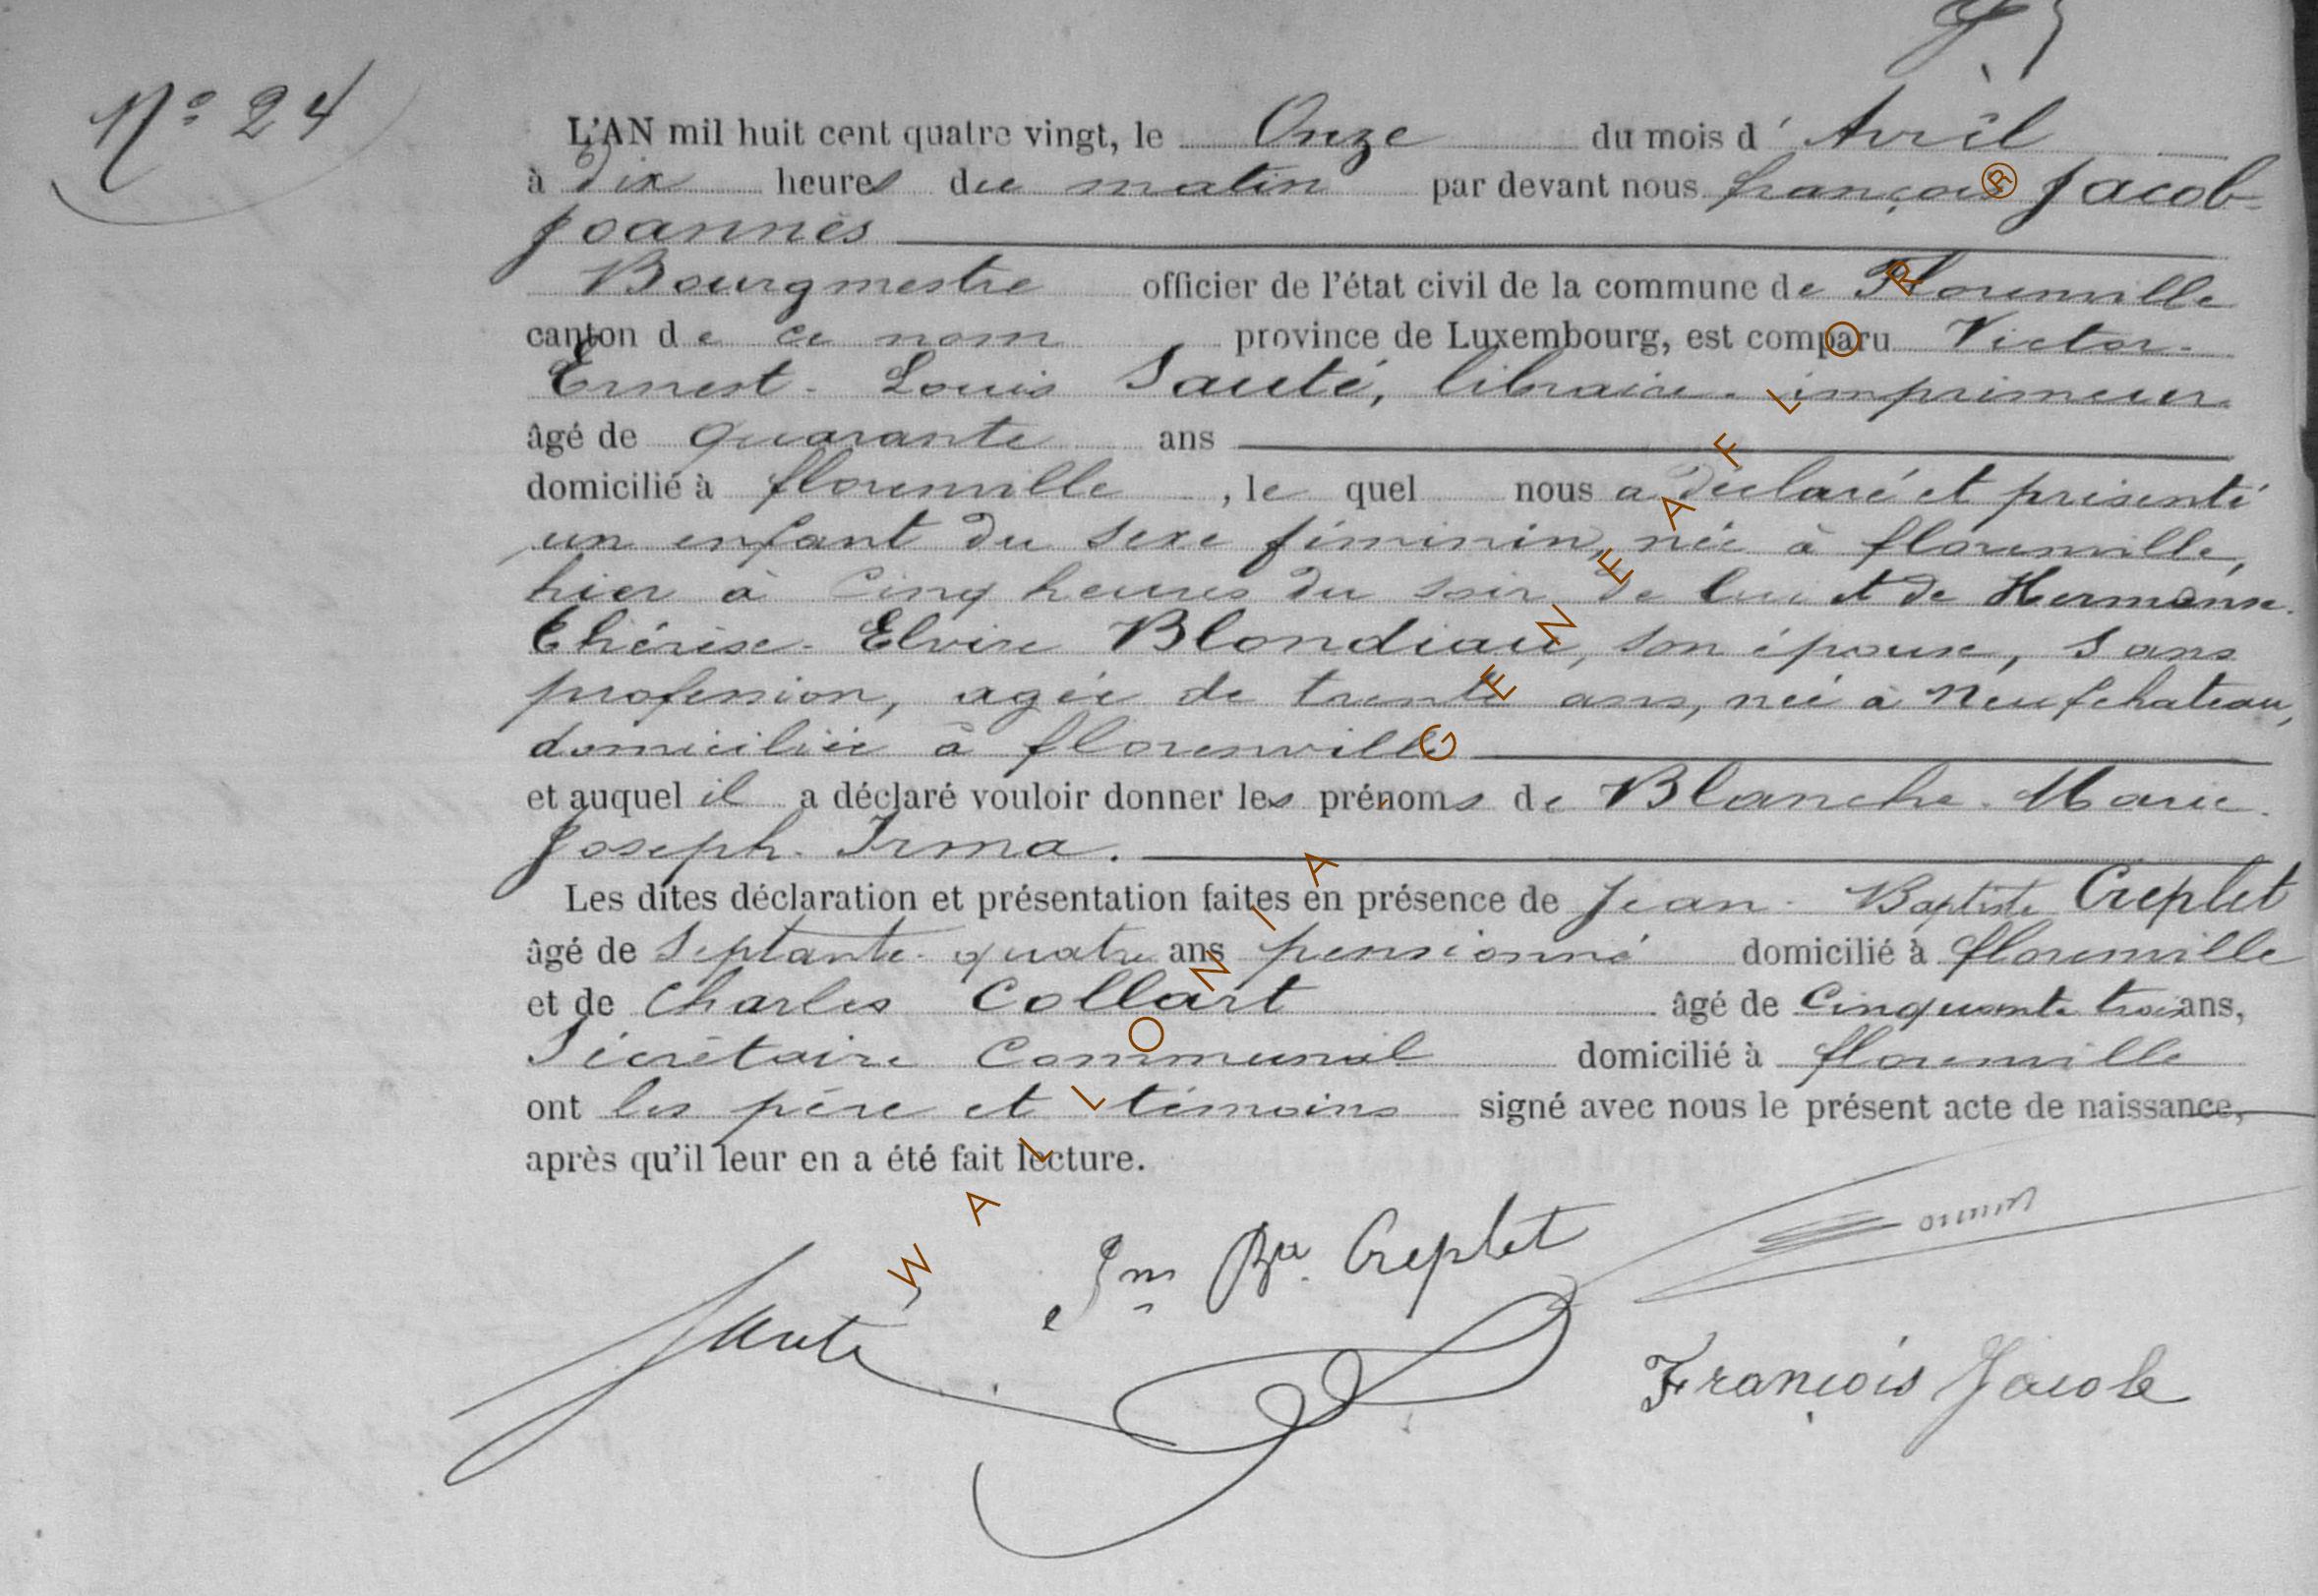 N° 24
L'AN mil huit cent quatre vingt, le Onze du mois d' Avril
à dix heures du matin par devant nous françois Jacob-
Joannès
Bourgmestre officier de l'état civil de la commune de Florenville
canton de ce nom province de Luxembourg, est comparu Victor-
Ernest-Louis Sauté, libraire-imprimeur
âgé de quarante ans
domicilié à florenville, le quel nous a déclaré et présenté
un enfant du sexe féminin, née à florenville,
hier à Cinq heures du soir de lui et de Hermanse-
Thérèse-Elvire Blondiau, son épouse, sans
profession, agée de trente ans, née à Neufchateau,
domiciliée à florenville
et auquel il a déclaré vouloir donner les prénoms de Blanche-Marie-
Joseph-Irma.
Les dites déclaration et présentation faites en présence de Jean-Baptiste Creplet
âgé de Septante-quatre ans pensionné domicilié à florenville
et de Charles Collart âgé de Cinquante trois ans,
Sécrétaire Communal domicilié à florenville
ont les père et témoins signé avec nous le présent acte de naissance,
après qu'il leur en a été fait lecture.
Jn Bte Creplet
Sauté
François Jacob
WALLONIA GENEAFLOR ®